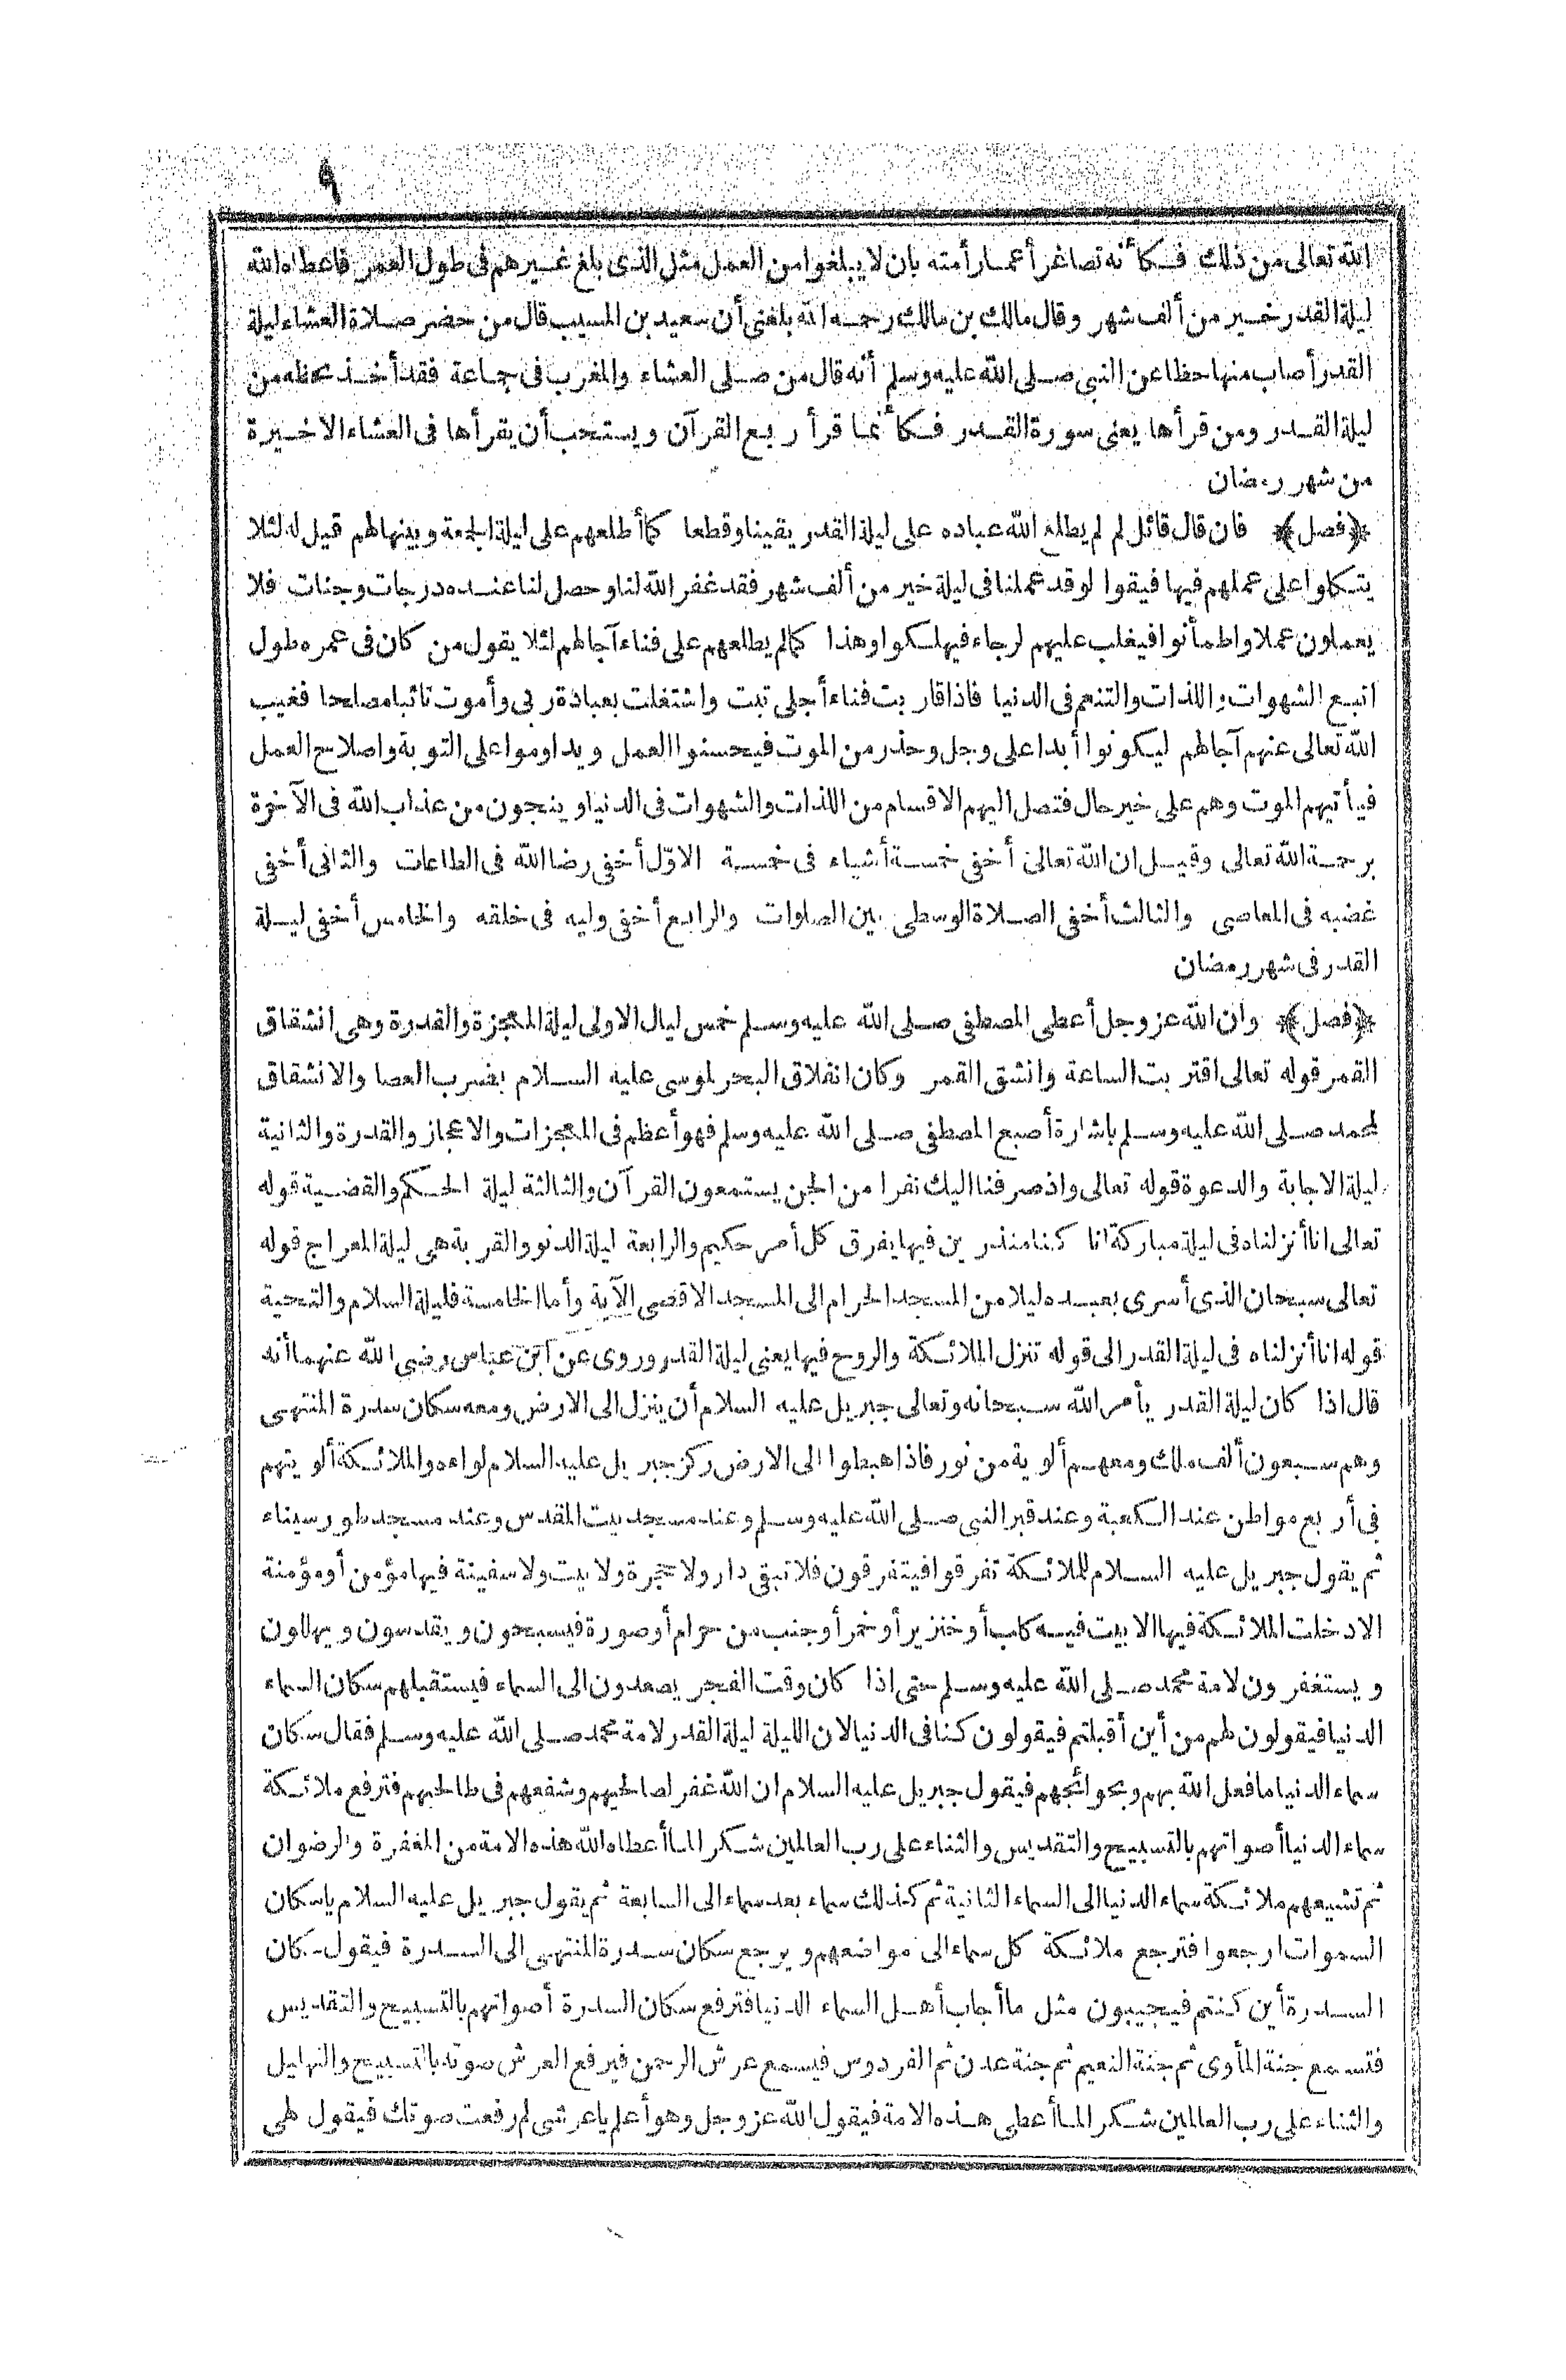 ٩
الله تعالى من ذلك فكأنه تصاغر أعمار أمته بان لا يبلغوا من العمل مثل الذى بلغ غيرهم فى طول العمر فاعطاه الله
ليلة القدر خير من ألف شهر وقال مالك بن مالك رحمه الله بلغنى أن سعيد بن المسيب قال من حضر صلاة العشاء ليلة
القدر أصاب منها حظا عن النبى صلى الله عليه وسلم أنه قال من صلى العشاء والمغرب فى جماعة فقد أخذ بحظه من
ليلة القدر ومن قرأها يعنى سورة القدر فكأنما قرأ ربع القرآن ويستحب أن يقرأها فى العشاء الاخيرة
من شهر رمضان
﴿فصل﴾ فان قال قائل لم لم يطلع الله عباده على ليلة القدر يقينا وقطعا كما أطلعهم على ليلة الجمعة وبينها لهم قيل له لئلا
يتكلوا على عملهم فيها فيقوا لو قد عملنا فى ليلة خير من ألف شهر فقد غفر الله لنا وحصل لنا عنده درجات وجنات فلا
يعملون عملا واطمأنوا فيغلب عليهم لرجاء فيهلكوا وهذا كما لم يطلعهم على فناء آجالهم لئلا يقول من كان فى عمره طول
اتبع الشهوات واللذات والتنعم فى الدنيا فاذا قاربت فناء أجلى تبت واشتغلت بعبادة ربى وأموت تائبا مصلحا فغيب
الله تعالى عنهم آجالهم ليكونوا أبدا على وجل وحذر من الموت فيحسنوا العمل ويداوموا على التوبة واصلاح العمل
فيأتيهم الموت وهم على خير حال فتصل اليهم الاقسام من اللذات والشهوات فى الدنيا وينجون من عذاب الله فى الآخرة
برحمة الله تعالى وقيل ان الله تعالى أخفى خمسة أشياء فى خمسة الاوّل أخفى رضا الله فى الطاعات والثانى أخفى
غضبه فى المعاصى والثالث أخفى الصلاة الوسطى بين الصلوات والرابع أخفى وليه فى خلقه والخامس أخفى ليلة
القدر فى شهر رمضان
﴿فصل﴾ وان الله عز وجل أعطى المصطفى صلى الله عليه وسلم خمس ليال الاولى ليلة المعجزة والقدرة وهى انشقاق
القمر قوله تعالى اقتربت الساعة وانشق القمر وكان انفلاق البحر لموسى عليه السلام بضرب العصا والانشقاق
لمحمد صلى الله عليه وسلم باشارة أصبع المصطفى صلى الله عليه وسلم فهو أعظم فى المعجزات والاعجاز والقدرة والثانية
ليلة الاجابة والدعوة قوله تعالى واذ صرفنا اليك نفرا من الجن يستمعون القرآن والثالثة ليلة الحكم والقضية قوله
تعالى انا أنزلناه فى ليلة مباركة انا كنا منذرين فيها يفرق كل أمر حكيم والرابعة ليلة الدنو والقربة هى ليلة المعراج قوله
تعالى سبحان الذى أسرى بعبده ليلا من المسجد الحرام الى المسجد الاقصى الآية وأما الخامسة فليلة السلام والتحية
قوله انا أنزلناه فى ليلة القدر الى قوله تنزل الملائكة والروح فيها يعنى ليلة القدر وروى عن ابن عباس رضى الله عنهما أنه
قال اذا كان ليلة القدر يأمر الله سبحانه وتعالى جبريل عليه السلام أن ينزل الى الارض ومعه سكان سدرة المنتهى
وهم سبعون ألف ملك ومعهم ألوية من نور فاذا هبطوا الى الارض ركز جبريل عليه السلام لواءه والملائكة ألويتهم
فى أربع مواطن عند الكعبة وعند قبر النبى صلى الله عليه وسلم وعند مسجد بيت المقدس وعند مسجد طور سيناء
ثم يقول جبريل عليه السلام للملائكة تفرقوا فيتفرقون فلا تبقى دار ولا حجرة ولا بيت ولا سفينة فيها مؤمن أو مؤمنة
الا دخلت الملائكة فيها الا بيت فيه كلب أو خنزير أو خمر أو جنب من حرام أو صورة فيسبحون ويقدسون ويهللون
ويستغفرون لامة محمد صلى الله عليه وسلم حتى اذا كان وقت الفجر يصعدون الى السماء فيستقبلهم سكان السماء
الدنيا فيقولون لهم من أين أقبلتم فيقولون كنا فى الدنيا لان الليلة ليلة القدر لامة محمد صلى الله عليه وسلم فقال سكان
سماء الدنيا ما فعل الله بهم وبحوائجهم فيقول جبريل عليه السلام ان الله غفر لصالحيهم وشفعهم فى طالحيهم فترفع ملائكة
سماء الدنيا أصواتهم بالتسبيح والتقديس والثناء على رب العالمين شكرا لما أعطاه الله هذه الامة من المغفرة والرضوان
ثم تشيعهم ملائكة سماء الدنيا الى السماء الثانية ثم كذلك سماء بعد سماء الى السابعة ثم يقول جبريل عليه السلام يا سكان
السموات ارجعوا فترجع ملائكة كل سماء الى مواضعهم ويرجع سكان سدرة المنتهى الى السدرة فيقول سكان
السدرة أين كنتم فيجيبون مثل ما أجاب أهل السماء الدنيا فترفع سكان السدرة أصواتهم بالتسبيح والتقديس
فتسمع جنة المأوى ثم جنة النعيم ثم جنة عدن ثم الفردوس فيسمع عرش الرحمن فيرفع العرش صوته بالتسبيح والتهليل
والثناء على رب العالمين شكرا لما أعطى هذه الامة فيقول الله عز وجل وهو أعلم يا عرشى لم رفعت صوتك فيقول الهى